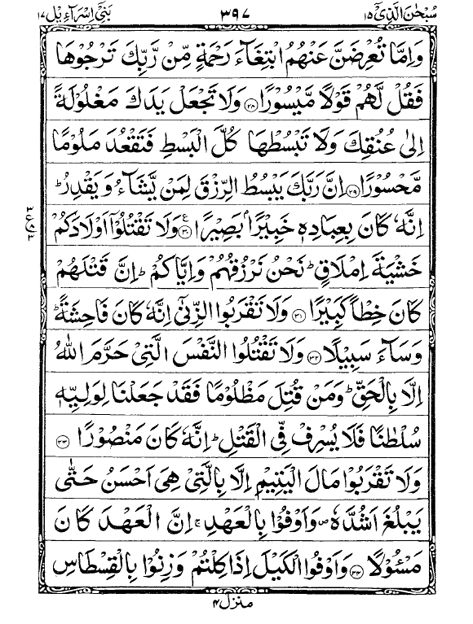 سبحٰن الذیٓ ۱۵ ۳۹۷ بنیٓ اسرآءیل ۱۷
وَاِمَّا تُعْرِضَنَّ عَنْهُمُ ابْتِغَآءَ رَحْمَةٍ مِّنْ رَّبِّكَ تَرْجُوْهَا
فَقُلْ لَّهُمْ قَوْلًا مَّيْسُوْرًا ﴿۲۸﴾ وَلَا تَجْعَلْ يَدَكَ مَغْلُوْلَةً
اِلٰى عُنُقِكَ وَلَا تَبْسُطْهَا كُلَّ الْبَسْطِ فَتَقْعُدَ مَلُوْمًا
مَّحْسُوْرًا ﴿۲۹﴾ اِنَّ رَبَّكَ يَبْسُطُ الرِّزْقَ لِمَنْ يَّشَآءُ وَيَقْدِرُ ؕ
اِنَّهٗ كَانَ بِعِبَادِهٖ خَبِيْرًۢا بَصِيْرًا ﴿۳۰﴾ وَلَا تَقْتُلُوْٓا اَوْلَادَكُمْ
خَشْيَةَ اِمْلَاقٍ ؕ نَحْنُ نَرْزُقُهُمْ وَاِيَّاكُمْ ؕ اِنَّ قَتْلَهُمْ
كَانَ خِطْاً كَبِيْرًا ﴿۳۱﴾ وَلَا تَقْرَبُوا الزِّنٰٓى اِنَّهٗ كَانَ فَاحِشَةً ؕ
وَسَآءَ سَبِيْلًا ﴿۳۲﴾ وَلَا تَقْتُلُوا النَّفْسَ الَّتِيْ حَرَّمَ اللّٰهُ
اِلَّا بِالْحَقِّ ؕ وَمَنْ قُتِلَ مَظْلُوْمًا فَقَدْ جَعَلْنَا لِوَلِيِّهٖ
سُلْطٰنًا فَلَا يُسْرِفْ فِّي الْقَتْلِ ؕ اِنَّهٗ كَانَ مَنْصُوْرًا ﴿۳۳﴾
وَلَا تَقْرَبُوْا مَالَ الْيَتِيْمِ اِلَّا بِالَّتِيْ هِيَ اَحْسَنُ حَتّٰى
يَبْلُغَ اَشُدَّهٗ ۪ وَاَوْفُوْا بِالْعَهْدِ ۚ اِنَّ الْعَهْدَ كَانَ
مَسْئُوْلًا ﴿۳۴﴾ وَاَوْفُوا الْكَيْلَ اِذَا كِلْتُمْ وَزِنُوْا بِالْقِسْطَاسِ
منزل ۴